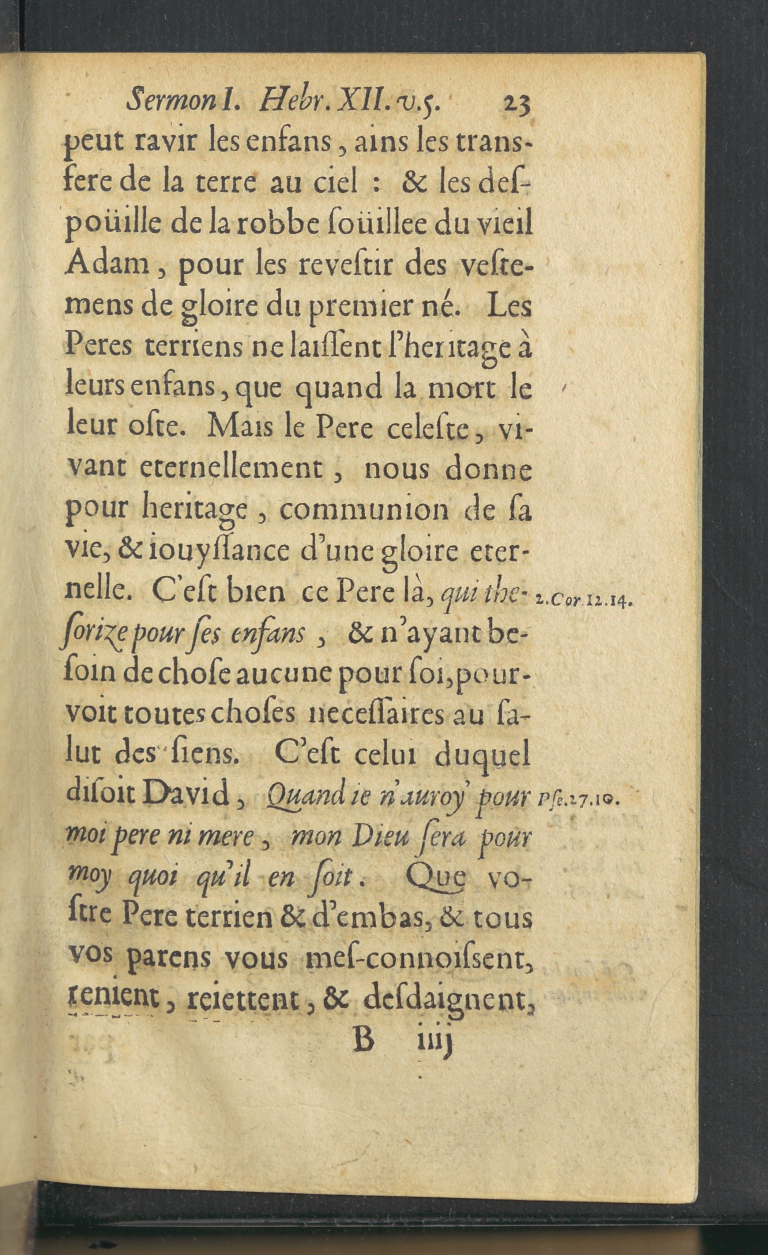 Sermon I. Hebr. XII. v.5. 23
peut ravir les enfans, ains les trans-
fere de la terre au ciel : & les deſ-
poüille de la robbe ſoüillee du vieil
Adam, pour les reveſtir des veſte-
mens de gloire du premier né. Les
Peres terriens ne laiſſent l'heritage à
leurs enfans, que quand la mort le
leur oſte. Mais le Pere celeſte, vi-
vant eternellement, nous donne
pour heritage, communion de ſa
vie, & iouyſſance d'une gloire eter-
nelle. C'eſt bien ce Pere là, qui the- 2.Cor.12.14.
ſorize pour ſes enfans, & n'ayant be-
ſoin de choſe aucune pour ſoi, pour-
voit toutes choſes neceſſaires au ſa-
lut des ſiens. C'eſt celui duquel
diſoit David, Quand ie n'auroy pour Pſe.27.10.
moi pere ni mere, mon Dieu ſera pour
moy quoi qu'il en ſoit. Que vo-
ſtre Pere terrien & d'embas, & tous
vos parens vous meſ-connoiſsent,
renient, reiettent, & deſdaignent,
B iiij